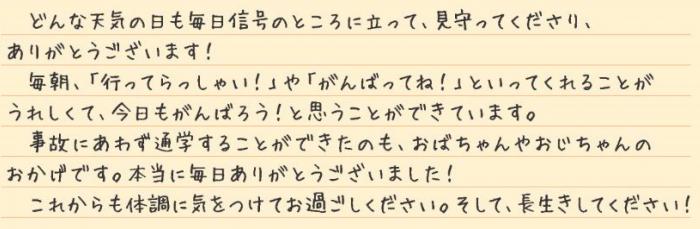 どんな天気の日も毎日信号のところに立って、見守ってくださり、
ありがとうございます！
毎朝、「行ってらっしゃい！」や「がんばってね！」といってくれることが
うれしくて、今日もがんばろう！と思うことができています。
事故にあわず通学することができたのも、おばちゃんやおじちゃんの
おかげです。本当に毎日ありがとうございました！
これからも体調に気をつけてお過ごしください。そして、長生きしてください！